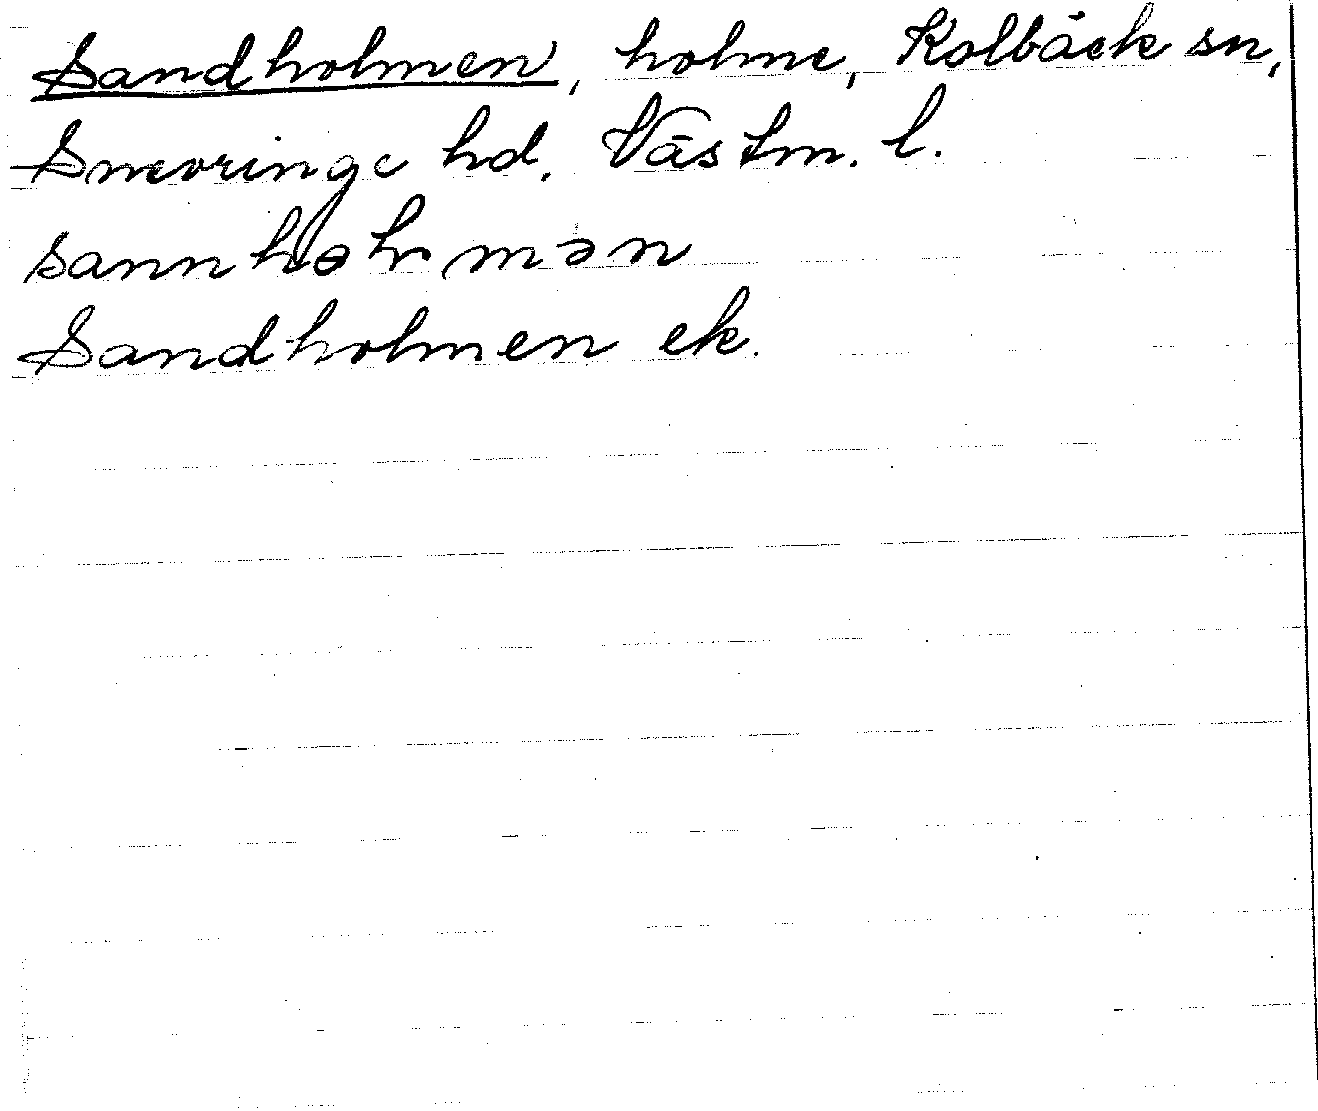 Sandholmen, holme, Kolbäck sn,
Snevringe hd. Västm. l.
Sandholmen ek.